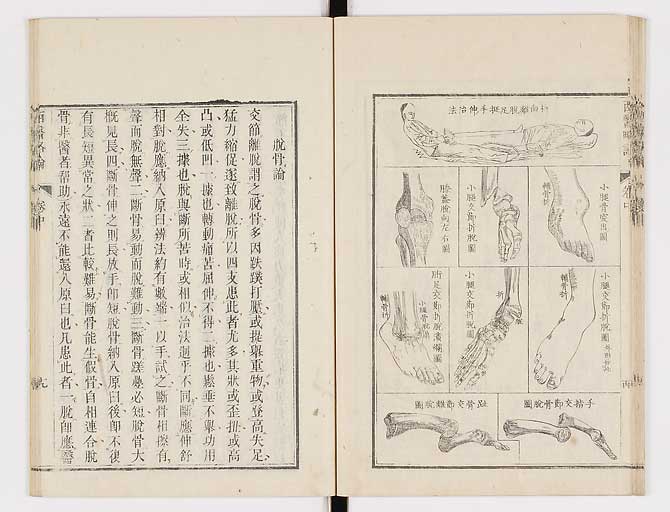 折向離脫足挺手伸治法
小腿骨突出圖
輔骨折
小腿交節折脫圖
膝蓋脫向左右圖
小腿交節折脫圖
輔骨折
小腿交節折脫圖
折
所足交節折脫潰爛圖
小腿骨脫潰
輔骨折
手拈交節骨脫圖
趾骨交節離脫圖
西醫略論
卷中
脫骨論
交節離脫謂之脫骨多因跌蹼打壓或提舉重物或登高失足
猛力縮促遂致離脫所以四支患此者尤多其狀或歪拼或高
凸或低凹一據也轉動痛苦屈伸不得二據也懸垂不舉功用
全失三據也脫與斷所苦時或相似治法迥乎不同斷應伸舒
相對脫應納入原臼辨法約有數端一以手試之斷骨相擦有
聲而脫無聲二斷骨易動而脫難動三斷骨蹉疊必短脫骨大
槪見長四斷骨伸之則長放手卽短脫骨納入原臼後卽不復
有長短異常之狀二者比較難易斷骨能生假骨自相連合脫
骨非醫者幫助永遠不能還入原臼也凡患此者一脫卽應醫
西醫略論
卷中
九